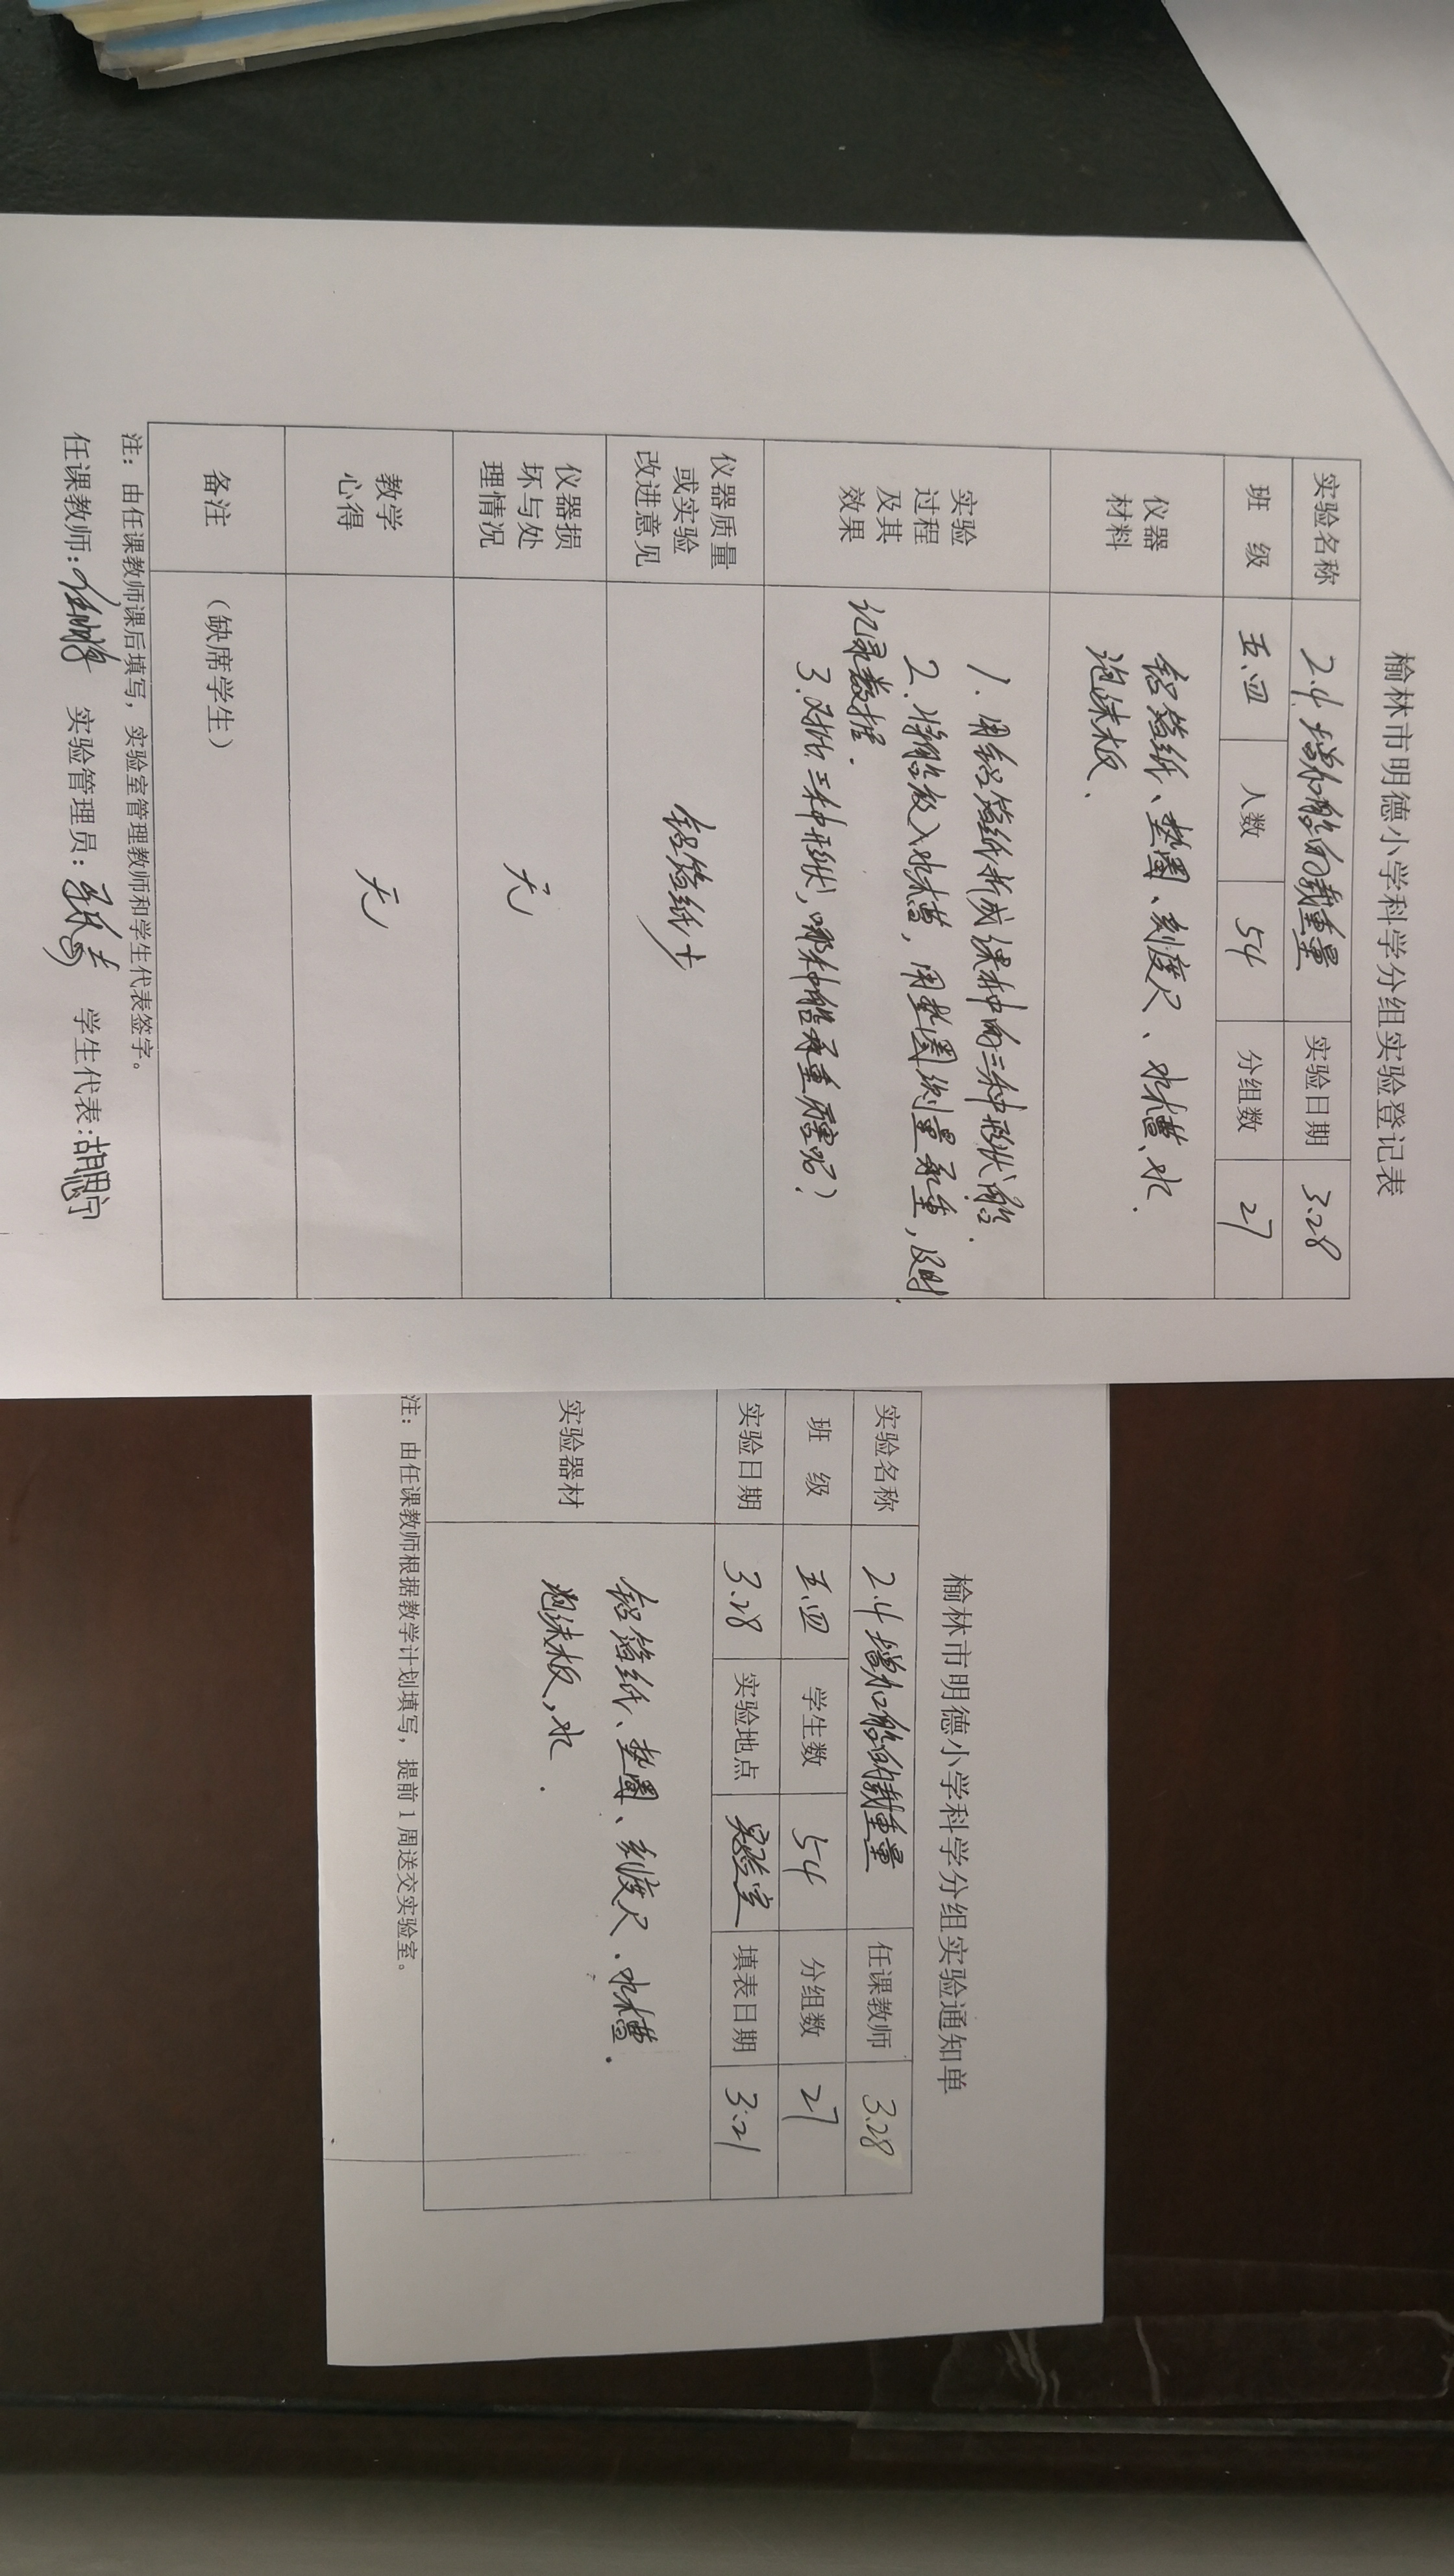 榆林市明德小学科学分组实验登记表
实验名称 2.4增加船的载重量 实验日期 3.28
班 级 五.四 人数 54 分组数 27
仪器材料 铝箔纸、垫圈、刻度尺、水槽、水.
泡沫板、
实验过程及其效果 1.用铝箔纸折成课本中的三种形状船.
2.将船放入水槽,用垫圈测量承重,及时
记录数据.
3.对比三种形状,哪种船承重厉害呢?
仪器质量或实验改进意见 铝箔纸少
仪器损坏与处理情况 无
教学心得 无
备注 (缺席学生)
注:由任课教师课后填写,实验室管理教师和学生代表签字。
任课教师: 实验管理员: 学生代表:
榆林市明德小学科学分组实验通知单
实验名称 2.4增加船的载重量 任课教师 3.28
班 级 五.四 学生数 54 分组数 27
实验日期 3.28 实验地点 实验室 填表日期 3.21
实验器材 铝箔纸、垫圈、刻度尺.水槽.
泡沫板,水.
注:由任课教师根据教学计划填写,提前1周送交实验室。